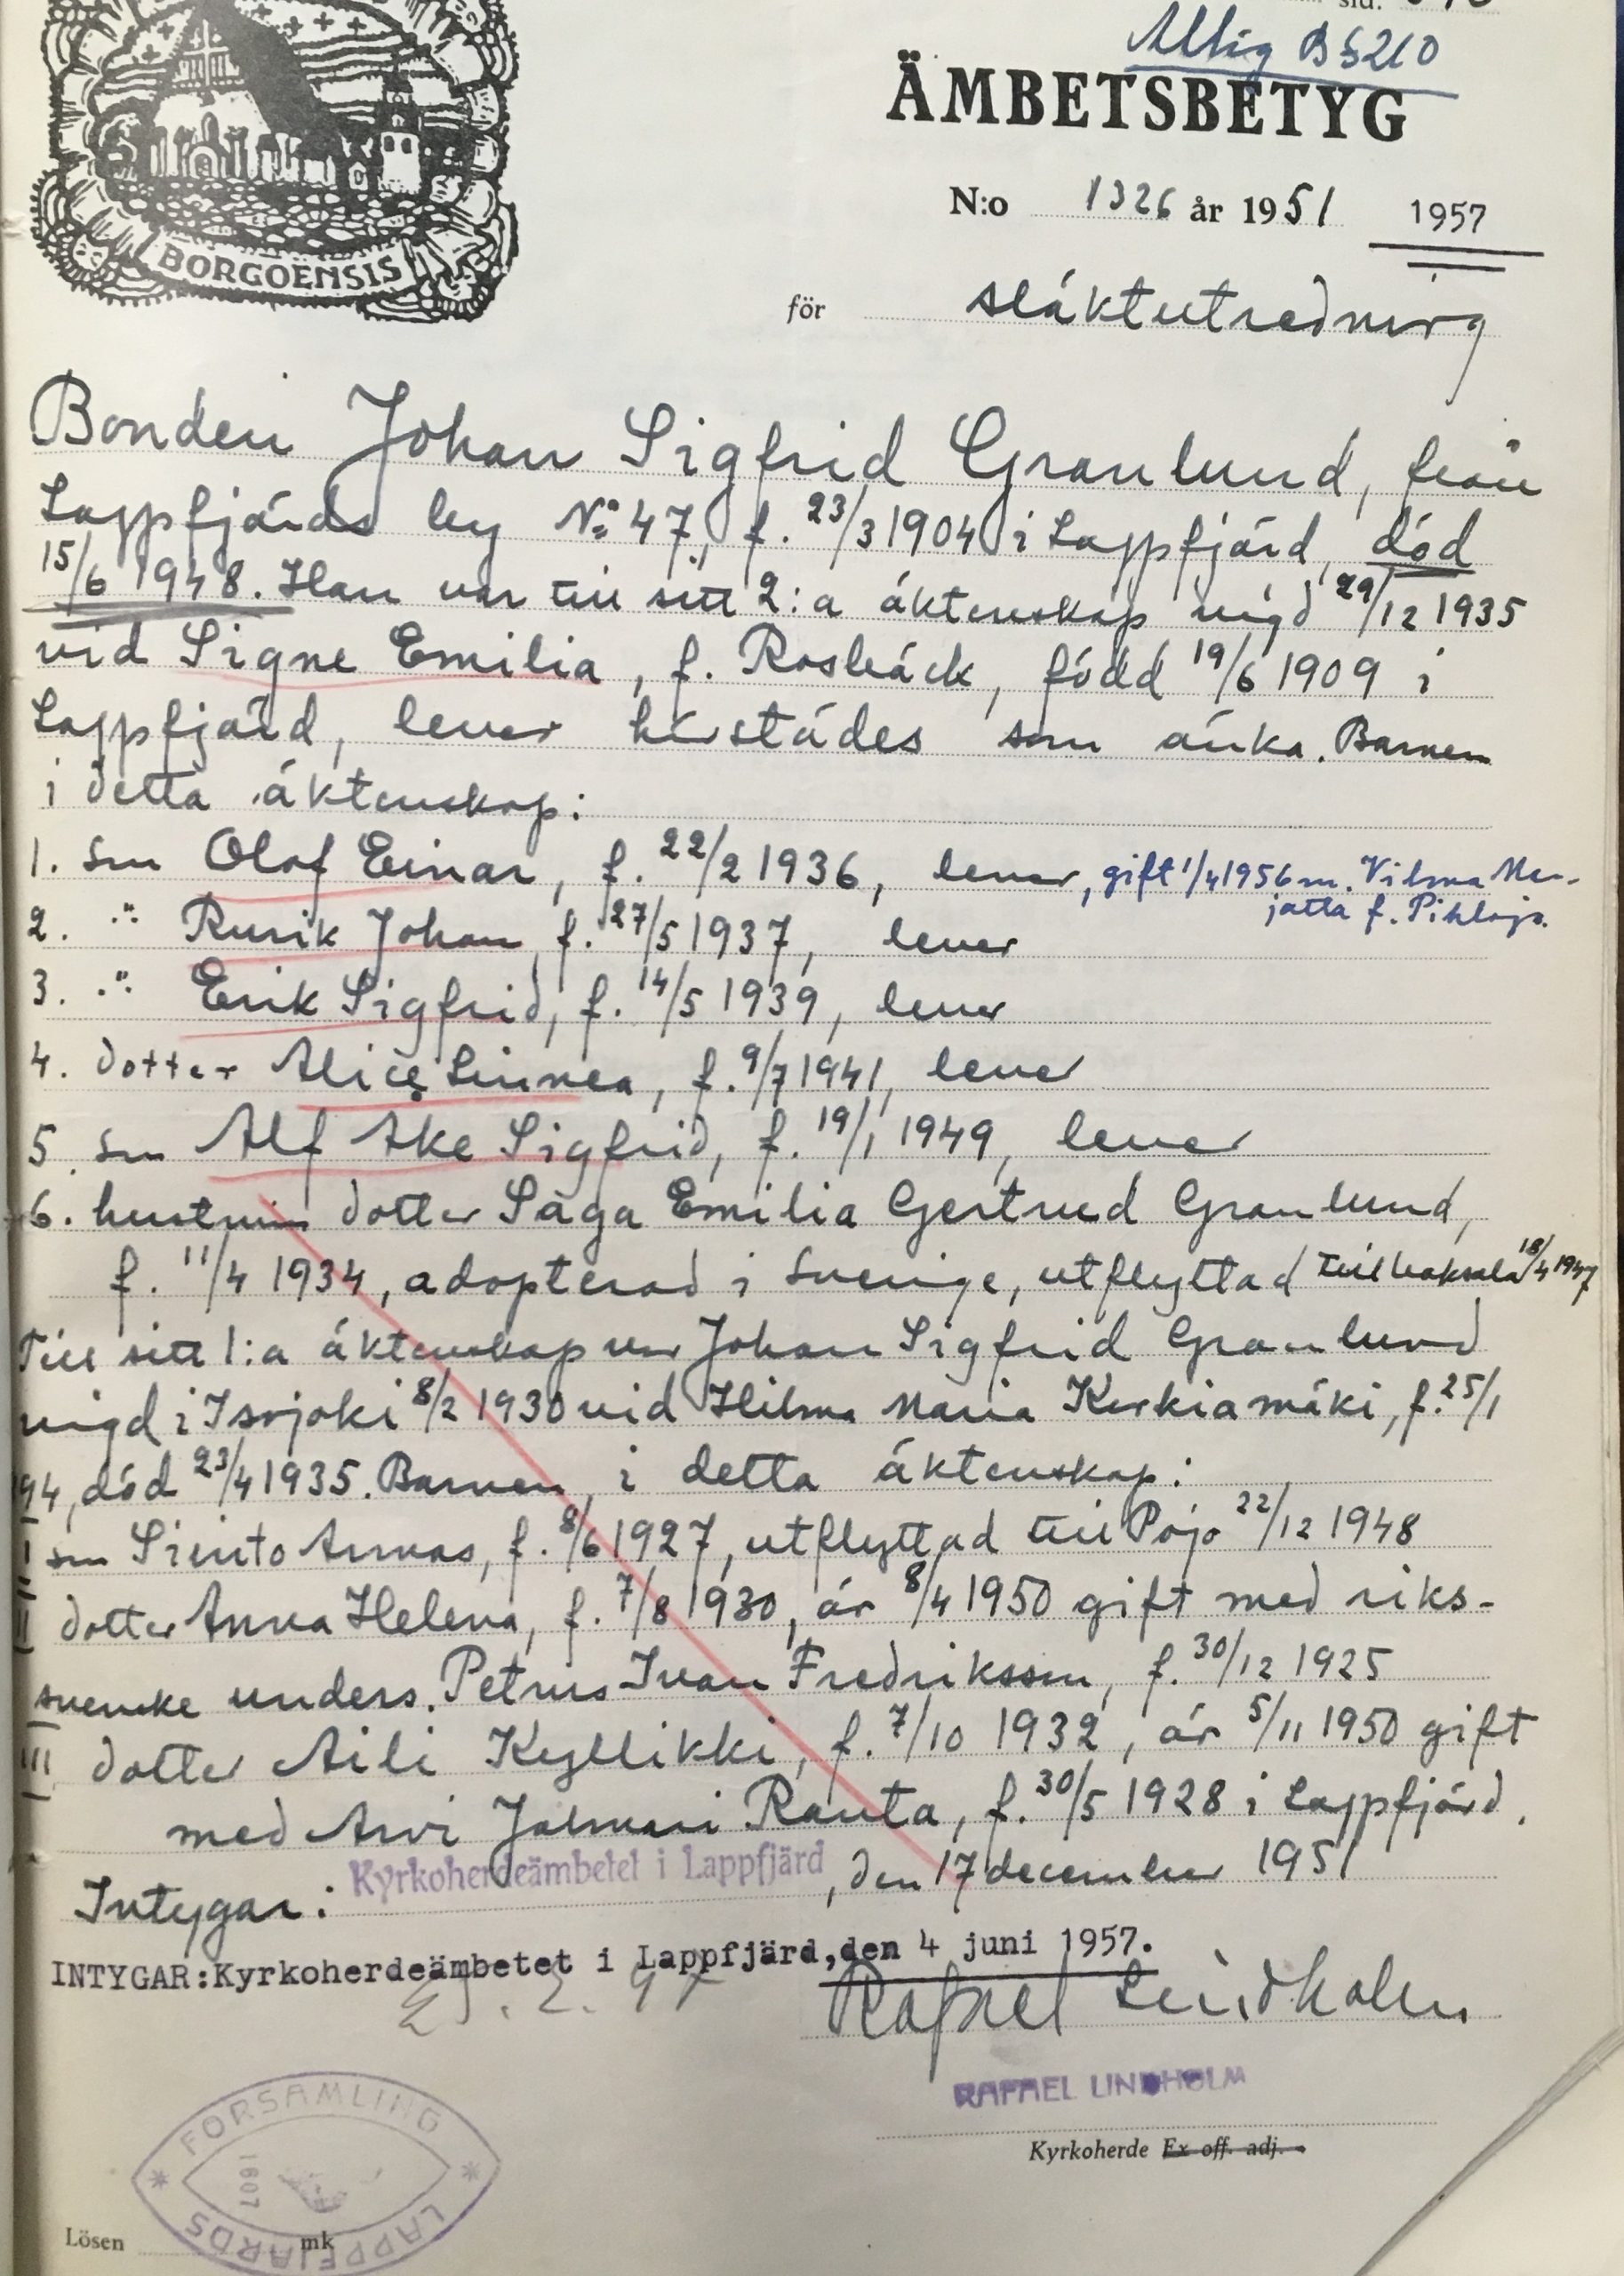 sid.
Allig B § 210
ÄMBETSBETYG
BORGOENSIS
N:o 1326 år 1951 1957
för släktutredning
Bonden Johan Sigfrid Granlund, från
Lappfjärds by No 47, f. 23/3 1904 i Lappfjärd, död
15/6 1948. Han var till sitt 2:a äktenskap vigd 29/12 1935
vid Signe Emilia, f. Rosbäck, född 19/6 1909 i
Lappfjärd, lever härstädes som änka. Barnen
i detta äktenskap:
1. son Olof Einar, f. 22/2 1936, lever, gift 1/4 1956 m. Vilma Mar-
jatta f. Pihlaja.
2. " Rurik Johan, f. 27/5 1937, lever
3. " Erik Sigfrid, f. 14/5 1939, lever
4. dotter Alice Linnea, f. 9/7 1941, lever
5. son Alf Åke Sigfrid, f. 19/1 1949, lever
6. hustruns dotter Saga Emilia Gertrud Granlund,
f. 11/4 1934, adopterad i Sverige, utflyttad till Vaksala 18/4 1947
Till sitt 1:a äktenskap var Johan Sigfrid Granlund
vigd i Isojoki 8/2 1930 vid Hilma Maria Kerkiamäki, f. 25/1
94, död 23/4 1935. Barnen i detta äktenskap:
I son Armas, f. 8/6 1927, utflyttad till Pojo 22/12 1948
II dotter Anna Helena, f. 7/8 1930, är 8/4 1950 gift med riks-
svenske unders. Petrus Ivan Fredriksson, f. 30/12 1925
III dotter Aili Kyllikki, f. 7/10 1932, är 5/11 1950 gift
med Arvi Jalmari Ranta, f. 30/5 1928 i Lappfjärd.
Intygar: Kyrkoherdeämbetet i Lappfjärd, den 17 december 1951
INTYGAR:Kyrkoherdeämbetet i Lappfjärd,den 4 juni 1957.
Rafael Lindholm
RAFAEL LINDHOLM
Kyrkoherde Ex off. adj.
FÖRSAMLING
1607
LAPPFJÄRDS
Lösen mk